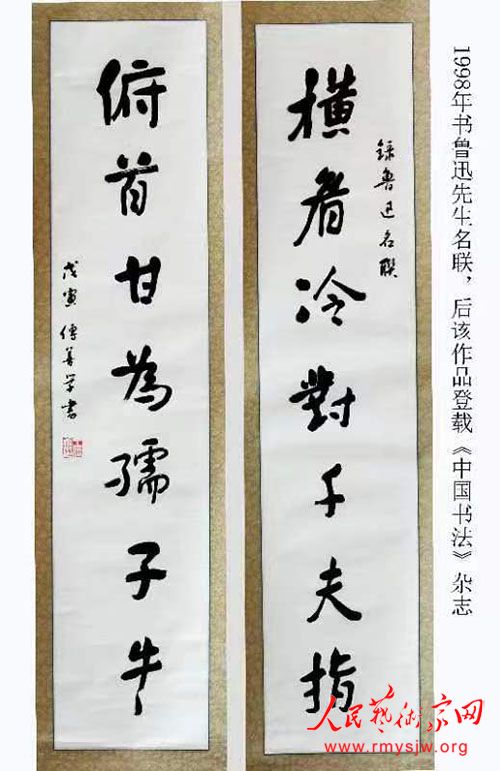 1998年书鲁迅先生名联，后该作品登载《中国书法》杂志
録魯迅名联
横眉冷對千夫指
俯首甘為孺子牛
戊寅 傅善学書
人民藝術家网
www.rmysjw.org